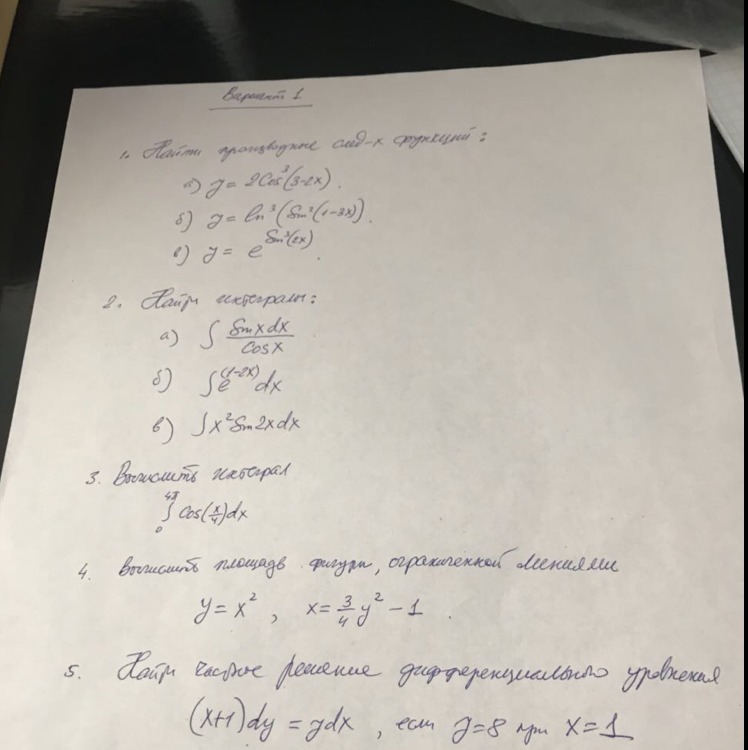 Вариант 1
1. Найти производные след-х функций:
а) y = 2Cos³(3-2x).
б) y = ln³(Sin²(1-3x)).
в) y = e^Sin³(2x).
2. Найти интегралы:
а) ∫ Sinxdx / Cosx
б) ∫e^(1-2x)dx
в) ∫x²Sin2xdx
3. Вычислить интеграл
∫₀^4π Cos(x/4)dx
4. Вычислить площадь фигуры, ограниченной линиями
y = x², x = 3/4 y² - 1.
5. Найти частное решение дифференциального уровнения
(x+1)dy = ydx, если y=8 при x=1